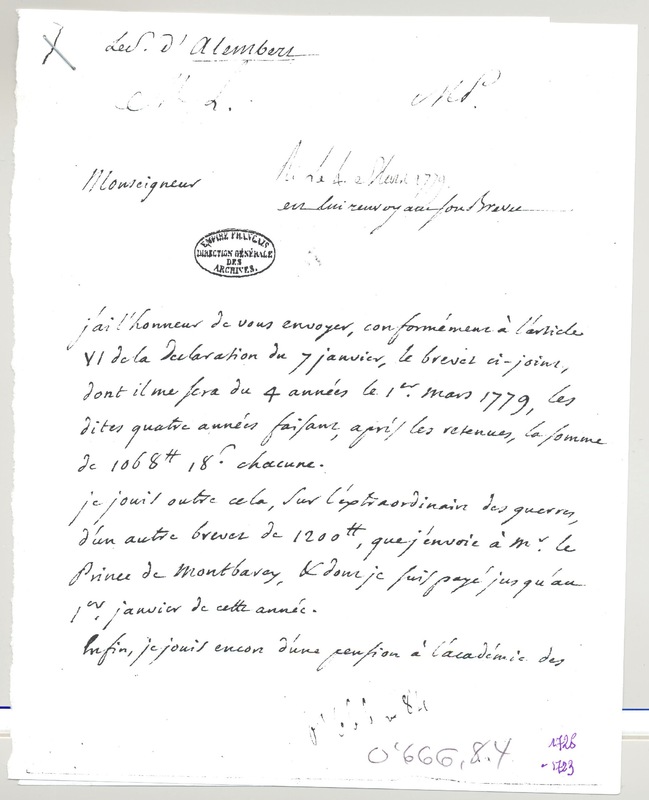 Le S. d'Alembert
M L.
Monseigneur
Le 4 Mars 1779
en lui renvoyant son Brevet
EMPIRE FRANÇAIS
DIRECTION GÉNÉRALE
DES
ARCHIVES.
j'ai l'honneur de vous envoyer, conformément à l'article
VI de la declaration du 7 janvier, le brevet ci-joint,
dont il me sera du 4 années le 1er. mars 1779, les
dites quatre années faisant, après les retenues, la somme
de 1068tt 18s chacune.
je jouis outre cela, sur l'extraordinaire des guerres,
d'un autre brevet de 1200tt, que j'envoie à Mr. le
Prince de Montbarey, & dont je suis payé jusqu'au
1er. janvier de cette année.
Enfin, je jouis encore d'une pension à l'académie des
1728
-1723